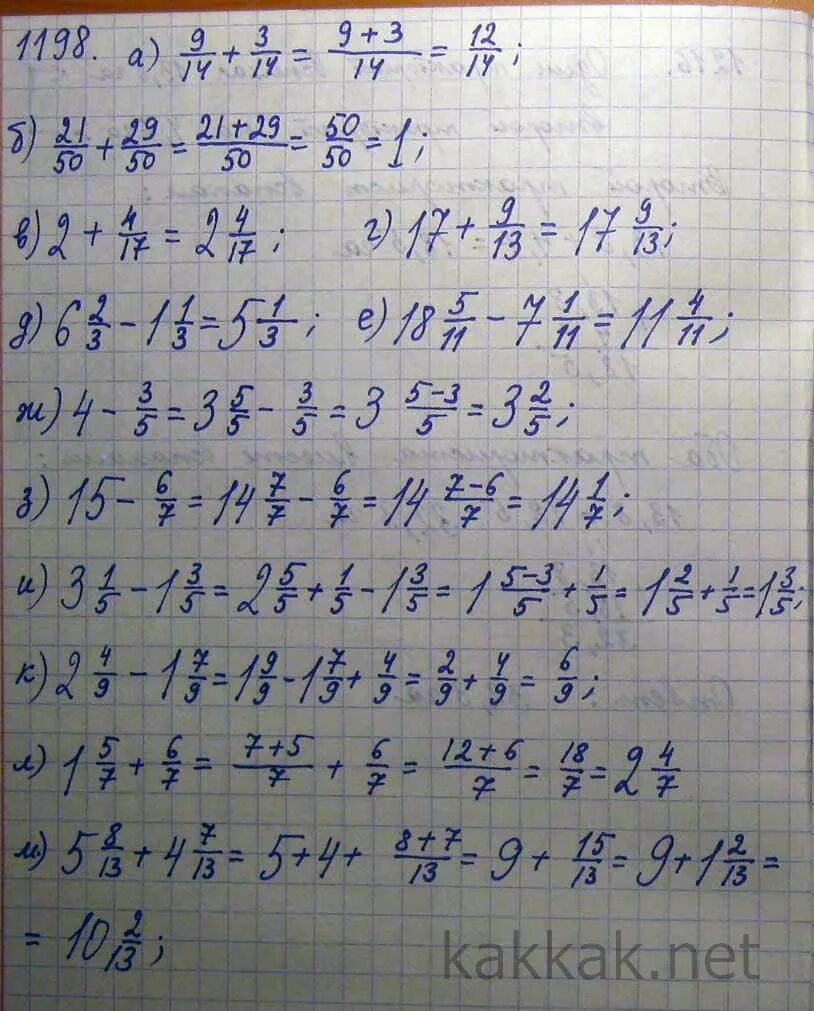 1198. а) 9/14 + 3/14 = (9+3)/14 = 12/14;
б) 21/50 + 29/50 = (21+29)/50 = 50/50 = 1;
в) 2 + 4/17 = 2 4/17; г) 17 + 9/13 = 17 9/13;
д) 6 2/3 - 1 1/3 = 5 1/3; е) 18 5/11 - 7 1/11 = 11 4/11;
ж) 4 - 3/5 = 3 5/5 - 3/5 = 3 (5-3)/5 = 3 2/5;
з) 15 - 6/7 = 14 7/7 - 6/7 = 14 (7-6)/7 = 14 1/7;
и) 3 1/5 - 1 3/5 = 2 5/5 + 1/5 - 1 3/5 = 1 (5-3)/5 + 1/5 = 1 2/5 + 1/5 = 1 3/5;
к) 2 4/9 - 1 7/9 = 1 9/9 - 1 7/9 + 4/9 = 2/9 + 4/9 = 6/9;
л) 1 5/7 + 6/7 = (7+5)/7 + 6/7 = (12+6)/7 = 18/7 = 2 4/7
м) 5 8/13 + 4 7/13 = 5+4+ (8+7)/13 = 9 + 15/13 = 9 + 1 2/13 =
= 10 2/13;
kakkak.net